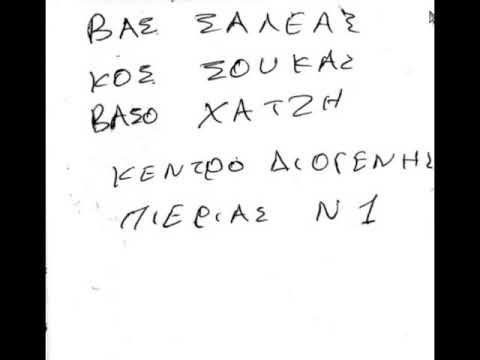 ΒΑΣ ΣΑΛΕΑΣ
ΚΟΣ ΣΟΥΚΑΣ
ΒΑΣΟ ΧΑΤΖΗ
ΚΕΝΤΡΟ ΔΙΟΓΕΝΗΣ
ΠΙΕΡΙΑΣ Ν 1